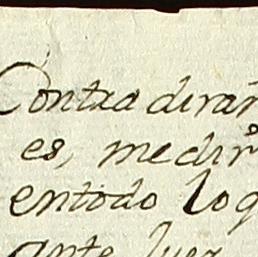 Contradiran
es, medir
en todo loq
ante Juez